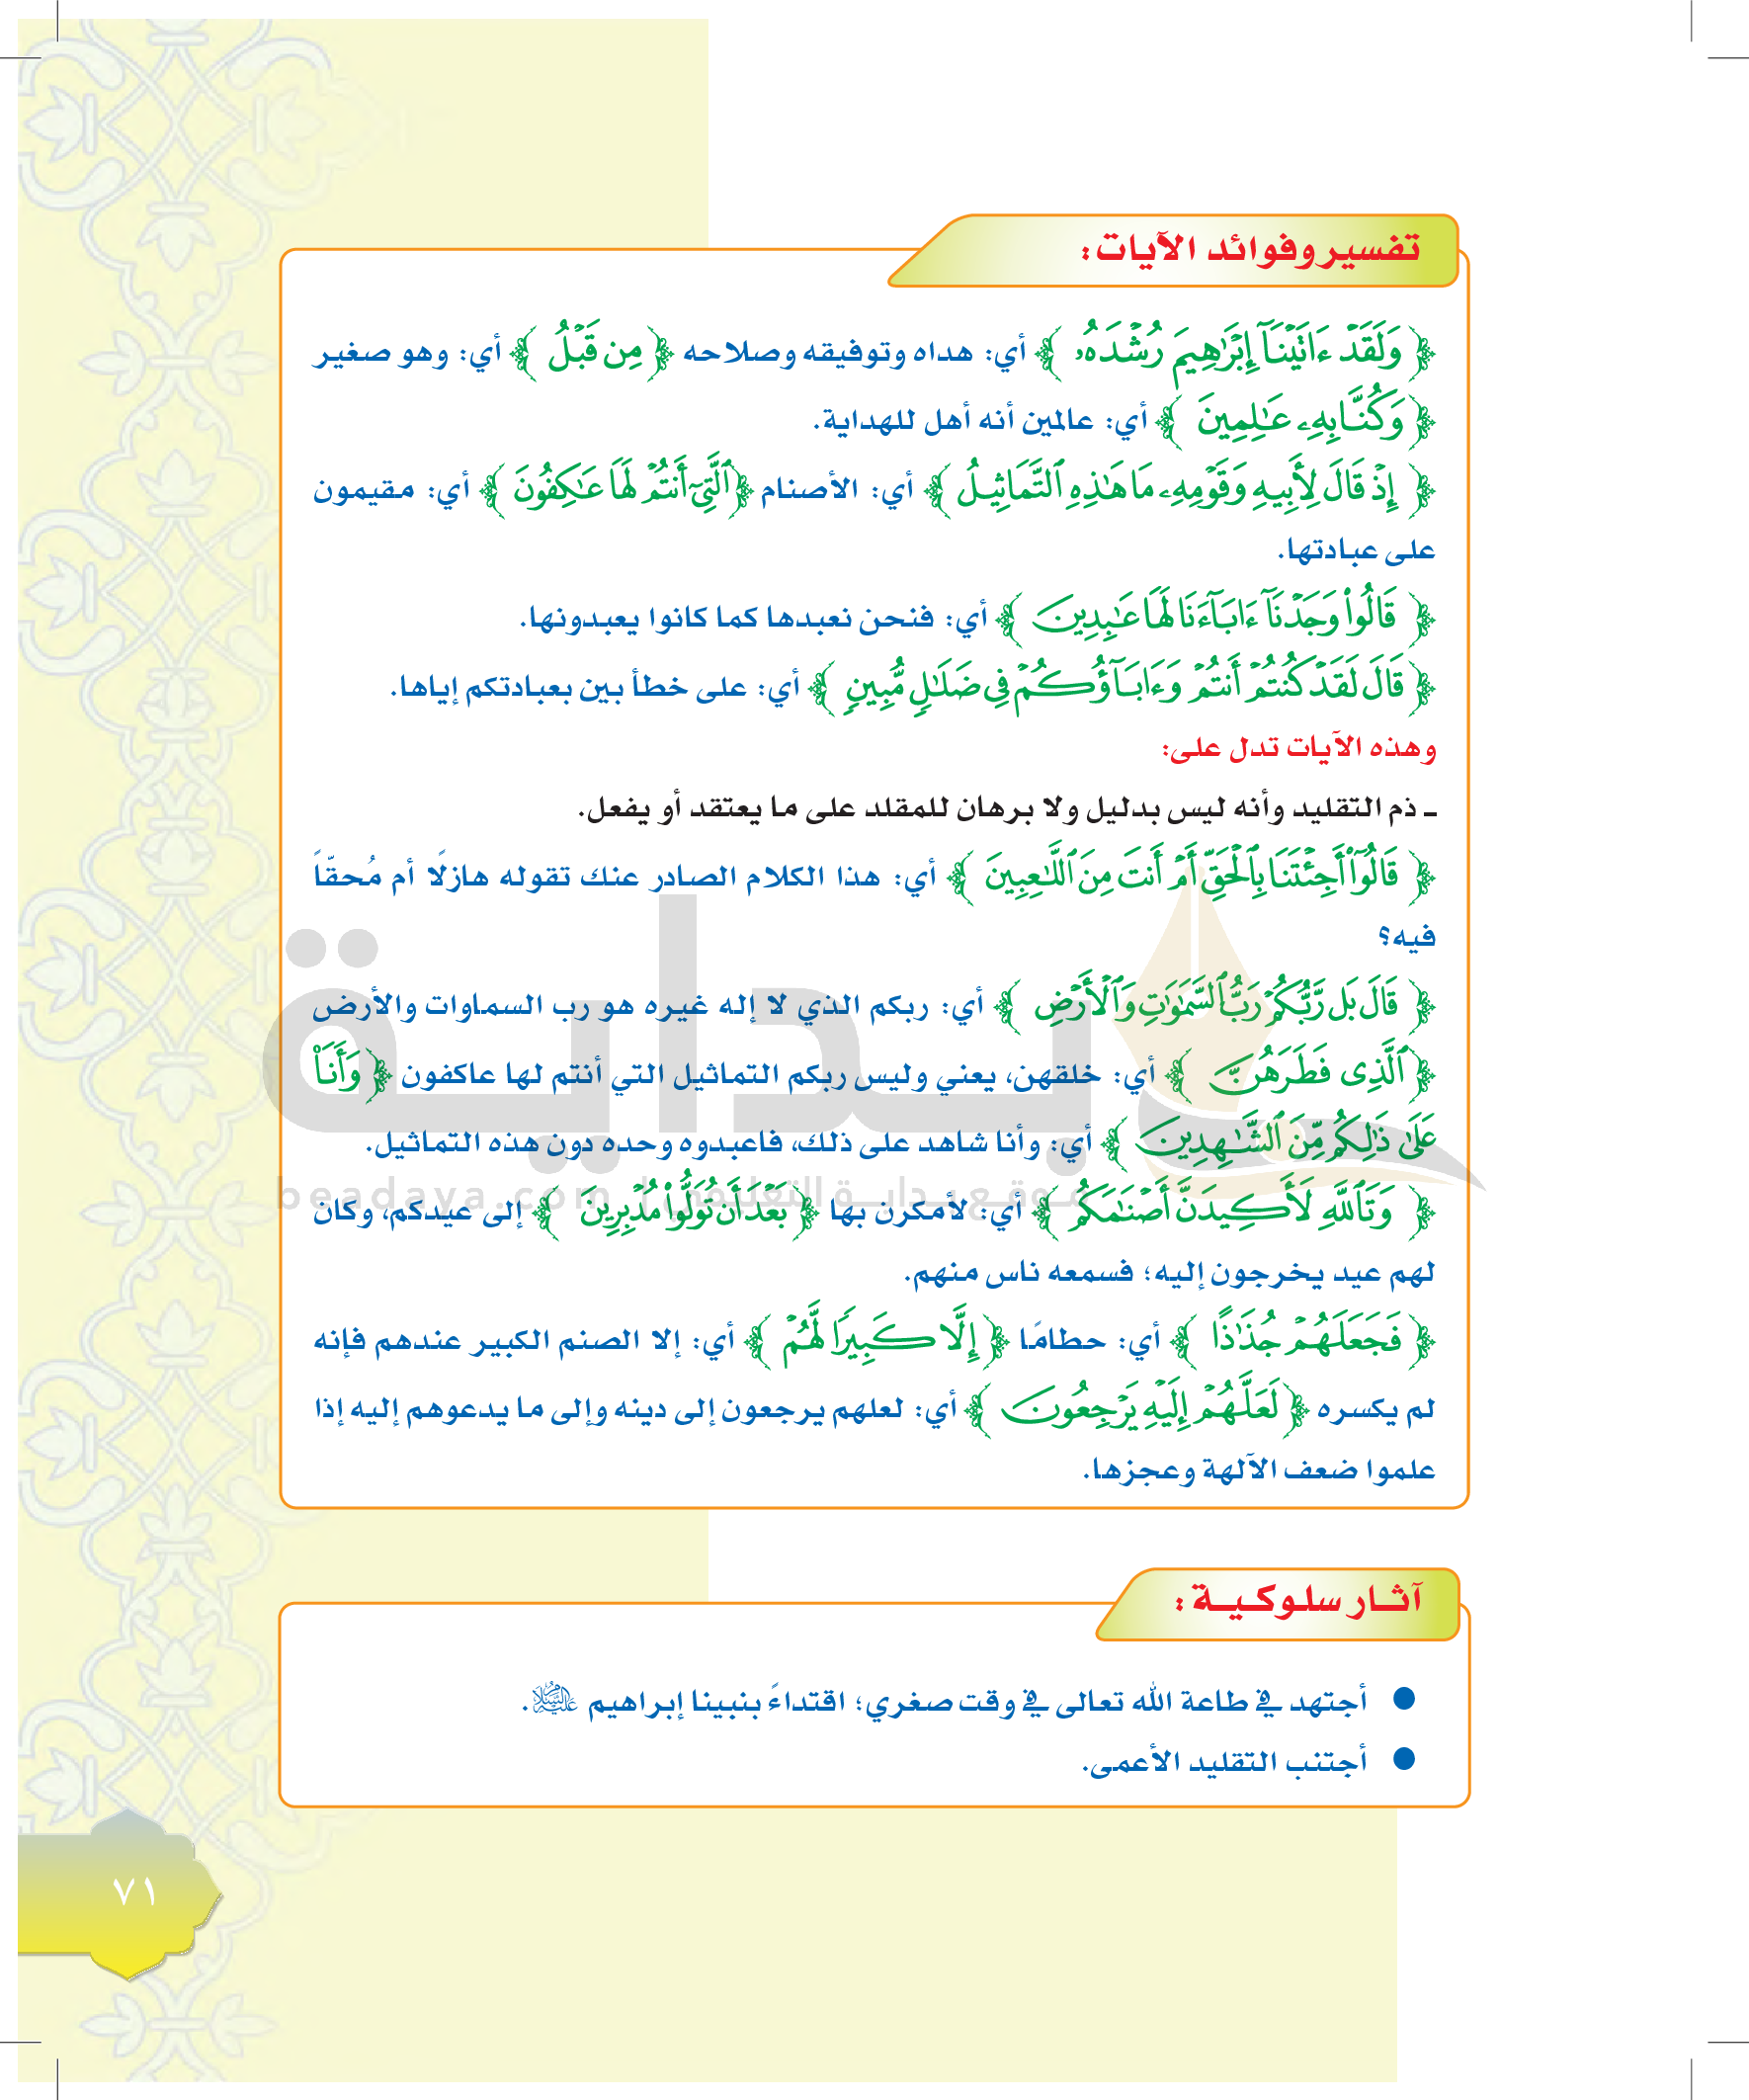 تفسير وفوائد الآيات:
﴿ وَلَقَدْ ءَاتَيْنَآ إِبْرَٰهِيمَ رُشْدَهُۥ ﴾ أي: هداه وتوفيقه وصلاحه ﴿ مِن قَبْلُ ﴾ أي: وهو صغير
﴿ وَكُنَّا بِهِۦ عَٰلِمِينَ ﴾ أي: عالمين أنه أهل للهداية.
﴿ إِذْ قَالَ لِأَبِيهِ وَقَوْمِهِۦ مَا هَٰذِهِ ٱلتَّمَاثِيلُ ﴾ أي: الأصنام ﴿ٱلَّتِىٓ أَنتُمْ لَهَا عَٰكِفُونَ ﴾ أي: مقيمون
على عبادتها.
﴿ قَالُوا۟ وَجَدْنَآ ءَابَآءَنَا لَهَا عَٰبِدِينَ ﴾ أي: فنحن نعبدها كما كانوا يعبدونها.
﴿ قَالَ لَقَدْ كُنتُمْ أَنتُمْ وَءَابَآؤُكُمْ فِى ضَلَٰلٍ مُّبِينٍ ﴾ أي: على خطأ بين بعبادتكم إياها.
وهذه الآيات تدل على:
ـ ذم التقليد وأنه ليس بدليل ولا برهان للمقلد على ما يعتقد أو يفعل.
﴿ قَالُوٓا۟ أَجِئْتَنَا بِٱلْحَقِّ أَمْ أَنتَ مِنَ ٱللَّٰعِبِينَ ﴾ أي: هذا الكلام الصادر عنك تقوله هازلًا أم مُحقّاً
فيه؟
﴿ قَالَ بَل رَّبُّكُمْ رَبُّ ٱلسَّمَٰوَٰتِ وَٱلْأَرْضِ ﴾ أي: ربكم الذي لا إله غيره هو رب السماوات والأرض
﴿ ٱلَّذِى فَطَرَهُنَّ ﴾ أي: خلقهن، يعني وليس ربكم التماثيل التي أنتم لها عاكفون ﴿ وَأَنَا۠
عَلَىٰ ذَٰلِكُم مِّنَ ٱلشَّٰهِدِينَ ﴾ أي: وأنا شاهد على ذلك، فاعبدوه وحده دون هذه التماثيل.
﴿ وَتَٱللَّهِ لَأَكِيدَنَّ أَصْنَٰمَكُم ﴾ أي: لأمكرن بها ﴿ بَعْدَ أَن تُوَلُّوا۟ مُدْبِرِينَ ﴾ إلى عيدكم، وكان
لهم عيد يخرجون إليه؛ فسمعه ناس منهم.
﴿ فَجَعَلَهُمْ جُذَٰذًا ﴾ أي: حطامًا ﴿ إِلَّا كَبِيرًا لَّهُمْ ﴾ أي: إلا الصنم الكبير عندهم فإنه
لم يكسره ﴿ لَعَلَّهُمْ إِلَيْهِ يَرْجِعُونَ ﴾ أي: لعلهم يرجعون إلى دينه وإلى ما يدعوهم إليه إذا
علموا ضعف الآلهة وعجزها.
بداية
موقع بداية التعليمي | beadaya.com
آثـار سلـوكـيـة :
● أجتهد في طاعة الله تعالى في وقت صغري؛ اقتداءً بنبينا إبراهيم عليه السلام.
● أجتنب التقليد الأعمى.
٧١